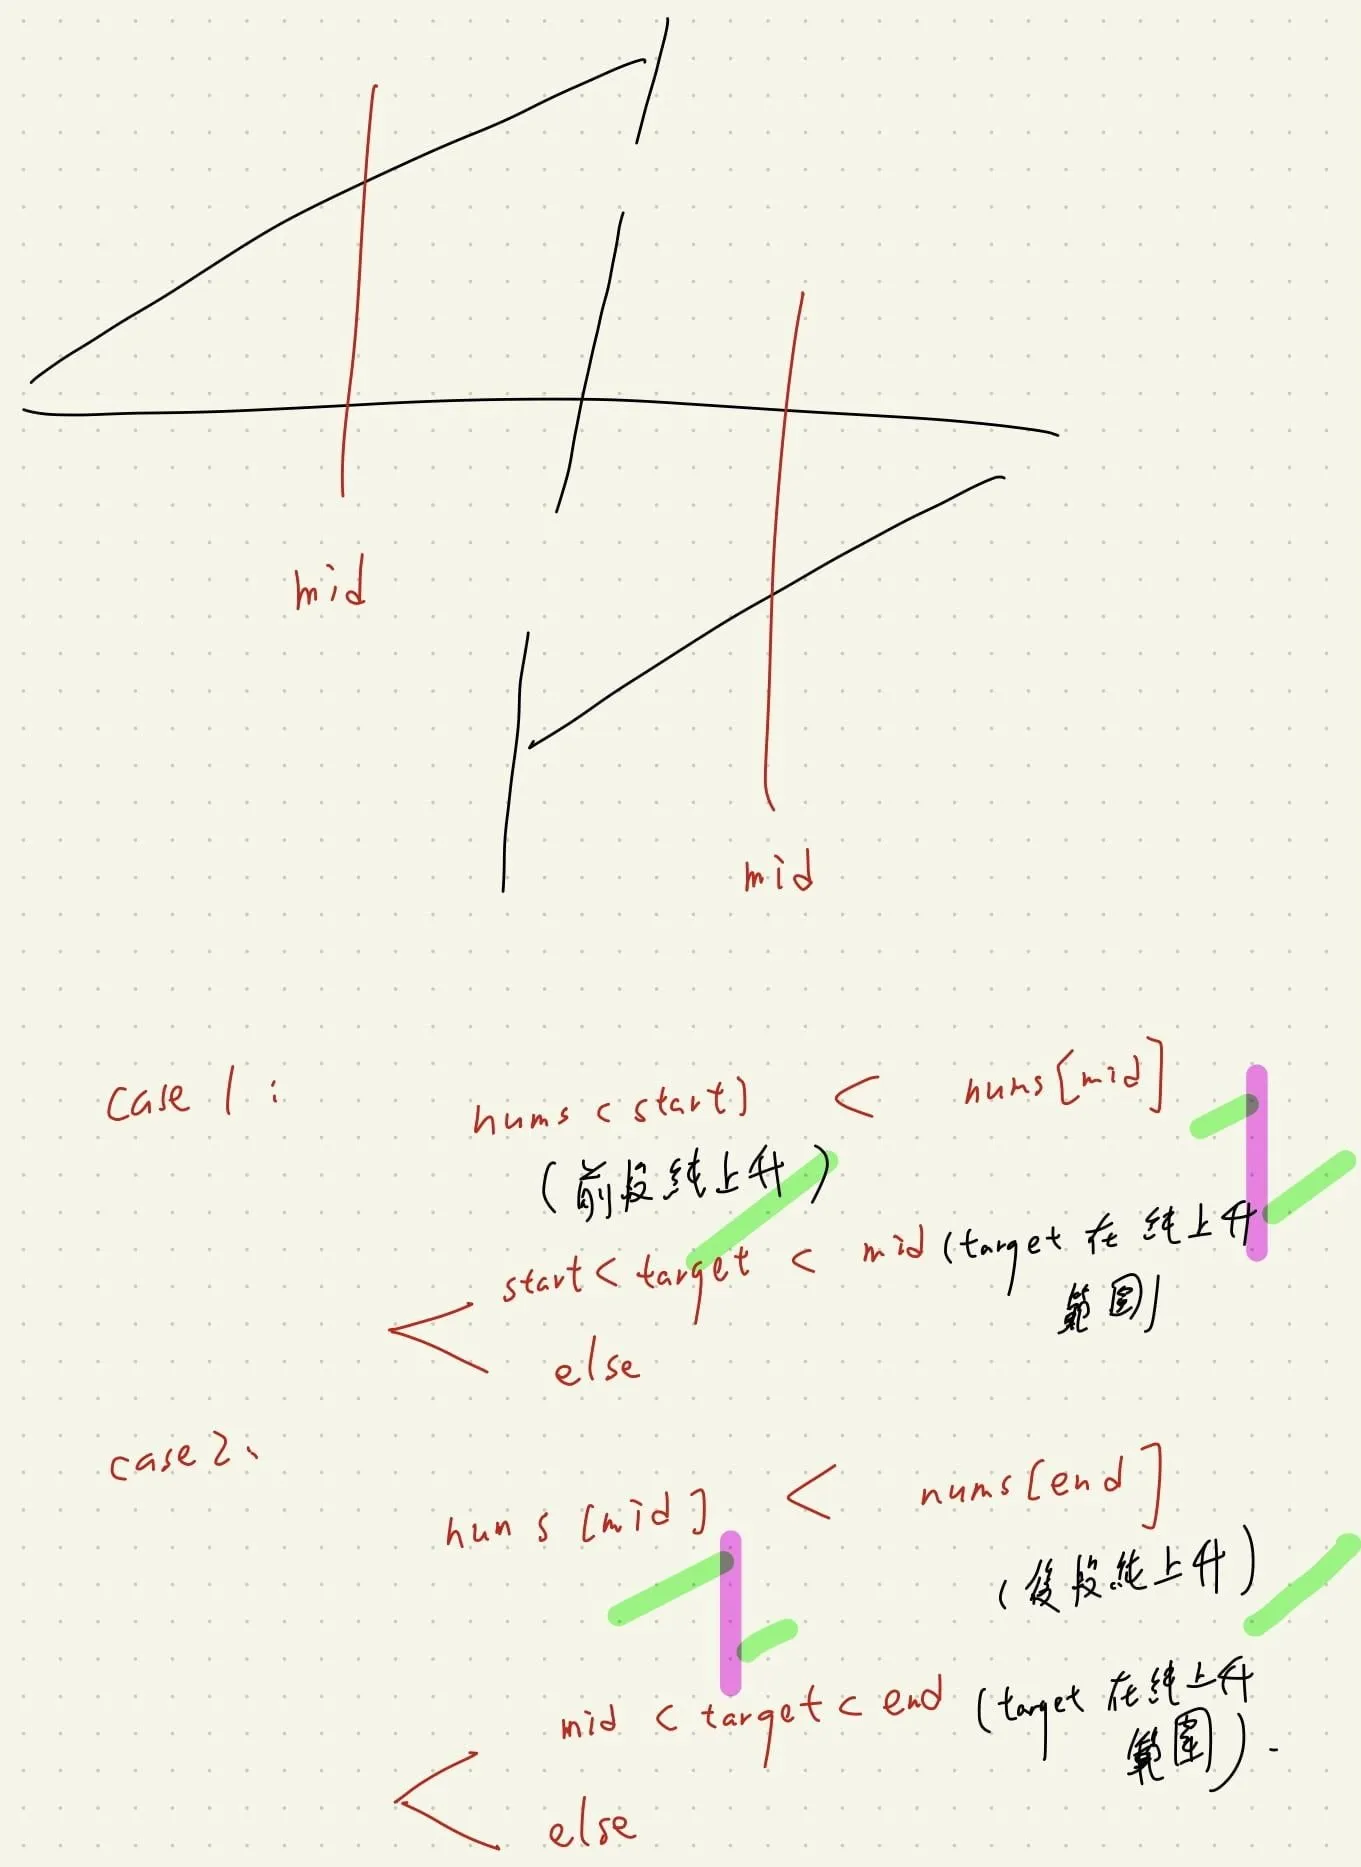 mid
mid
case 1 :
nums [start] < nums[mid]
(前段純上升)
start < target < mid (target 在 純上升
範圍)
else
case 2、
nums [mid] < nums[end]
(後段純上升)
mid < target < end (target 在純上升
範圍).
else